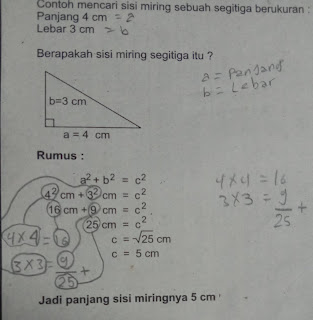 Contoh mencari sisi miring sebuah segitiga berukuran :
Panjang 4 cm = a
Lebar 3 cm = b
Berapakah sisi miring segitiga itu ?
a = Panjang
b = Lebar
b=3 cm
a = 4 cm
Rumus :
a² + b² = c²
4² cm + 3² cm = c²
16 cm + 9 cm = c²
25 cm = c²
c = √25 cm
c = 5 cm
4 x 4 = 16
3 x 3 = 9
25 +
4 x 4 = 16
3 x 3 = 9
25 +
Jadi panjang sisi miringnya 5 cm